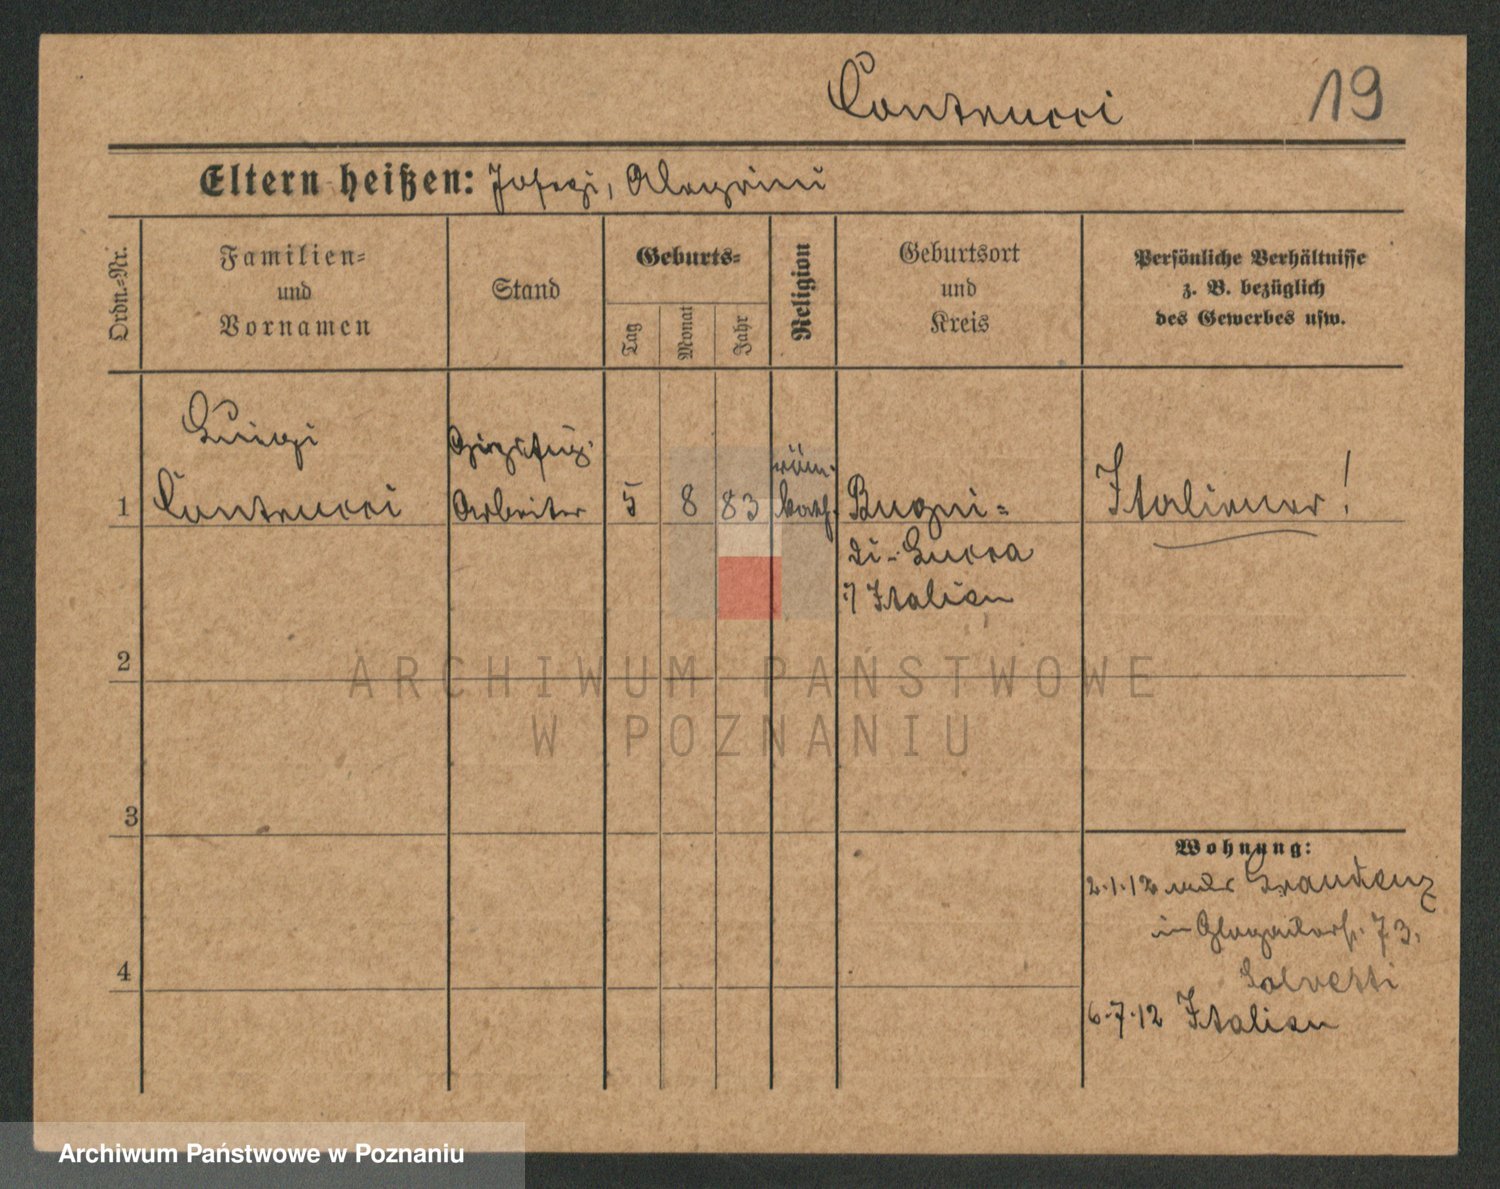 Contrucci 19
Eltern heißen: Josepi, Alegrini
Ordn.-Nr.
Familien-
und
Vornamen
Stand
Geburts-
Tag
Monat
Jahr
Religion
Geburtsort
und
Kreis
Persönliche Verhältnisse
z. B. bezüglich
des Gewerbes usw.
Luigi
Gipsfig.
röm.
1 Contrucci Arbeiter 5 8 83 kath. Bugni- Italiener!
di-Lucca
Italien
2
ARCHIWUM PAŃSTWOWE
W POZNANIU
3
Wohnung:
2.1.12 Graudenz
in 73.
4
6.7.12 Italien
Archiwum Państwowe w Poznaniu